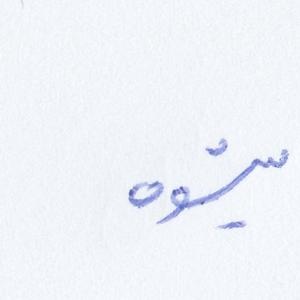 شیوه